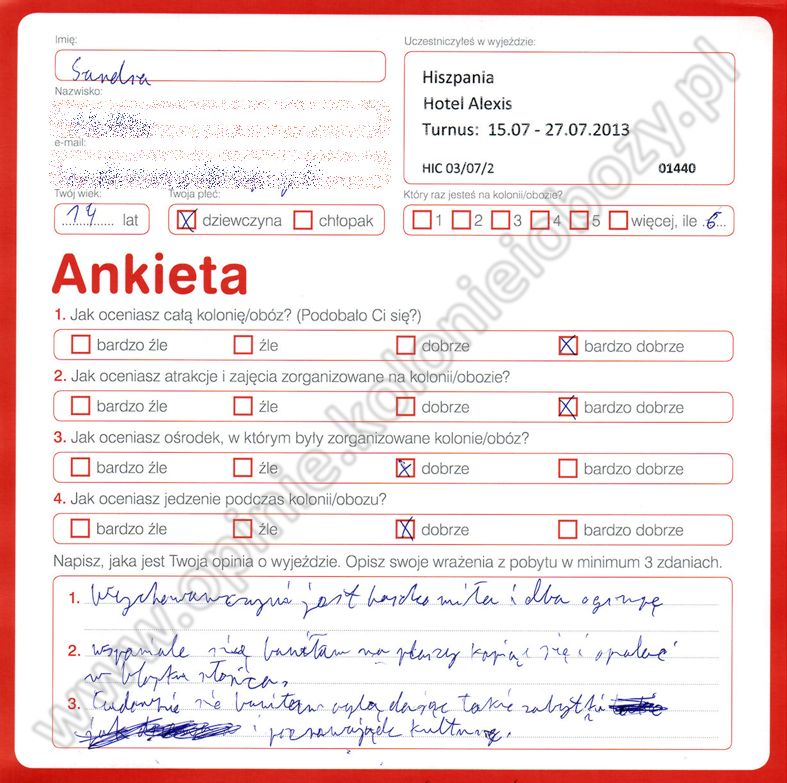 Imię:
Sandra
Nazwisko:
e-mail:
Twój wiek:
14 lat
Twoja płeć:
dziewczyna chłopak
Uczestniczyłeś w wyjeździe:
Hiszpania
Hotel Alexis
Turnus: 15.07 - 27.07.2013
HIC 03/07/2 01440
Który raz jesteś na kolonii/obozie?
1 2 3 4 5 więcej, ile 6
Ankieta
1. Jak oceniasz całą kolonię/obóz? (Podobało Ci się?)
bardzo źle źle dobrze bardzo dobrze
2. Jak oceniasz atrakcje i zajęcia zorganizowane na kolonii/obozie?
bardzo źle źle dobrze bardzo dobrze
3. Jak oceniasz ośrodek, w którym były zorganizowane kolonie/obóz?
bardzo źle źle dobrze bardzo dobrze
4. Jak oceniasz jedzenie podczas kolonii/obozu?
bardzo źle źle dobrze bardzo dobrze
Napisz, jaka jest Twoja opinia o wyjeździe. Opisz swoje wrażenia z pobytu w minimum 3 zdaniach.
1. Wychowawczyni jest bardzo miła i dba o grupę
2. wspaniale się bawiłam na plaszy kąpiąc się i opalać
w blasku słońca.
3. Cudownie się bawiłam oglądając takie zabytki
i poznawając kulturę.
www.opinie.kolonieiobozy.pl